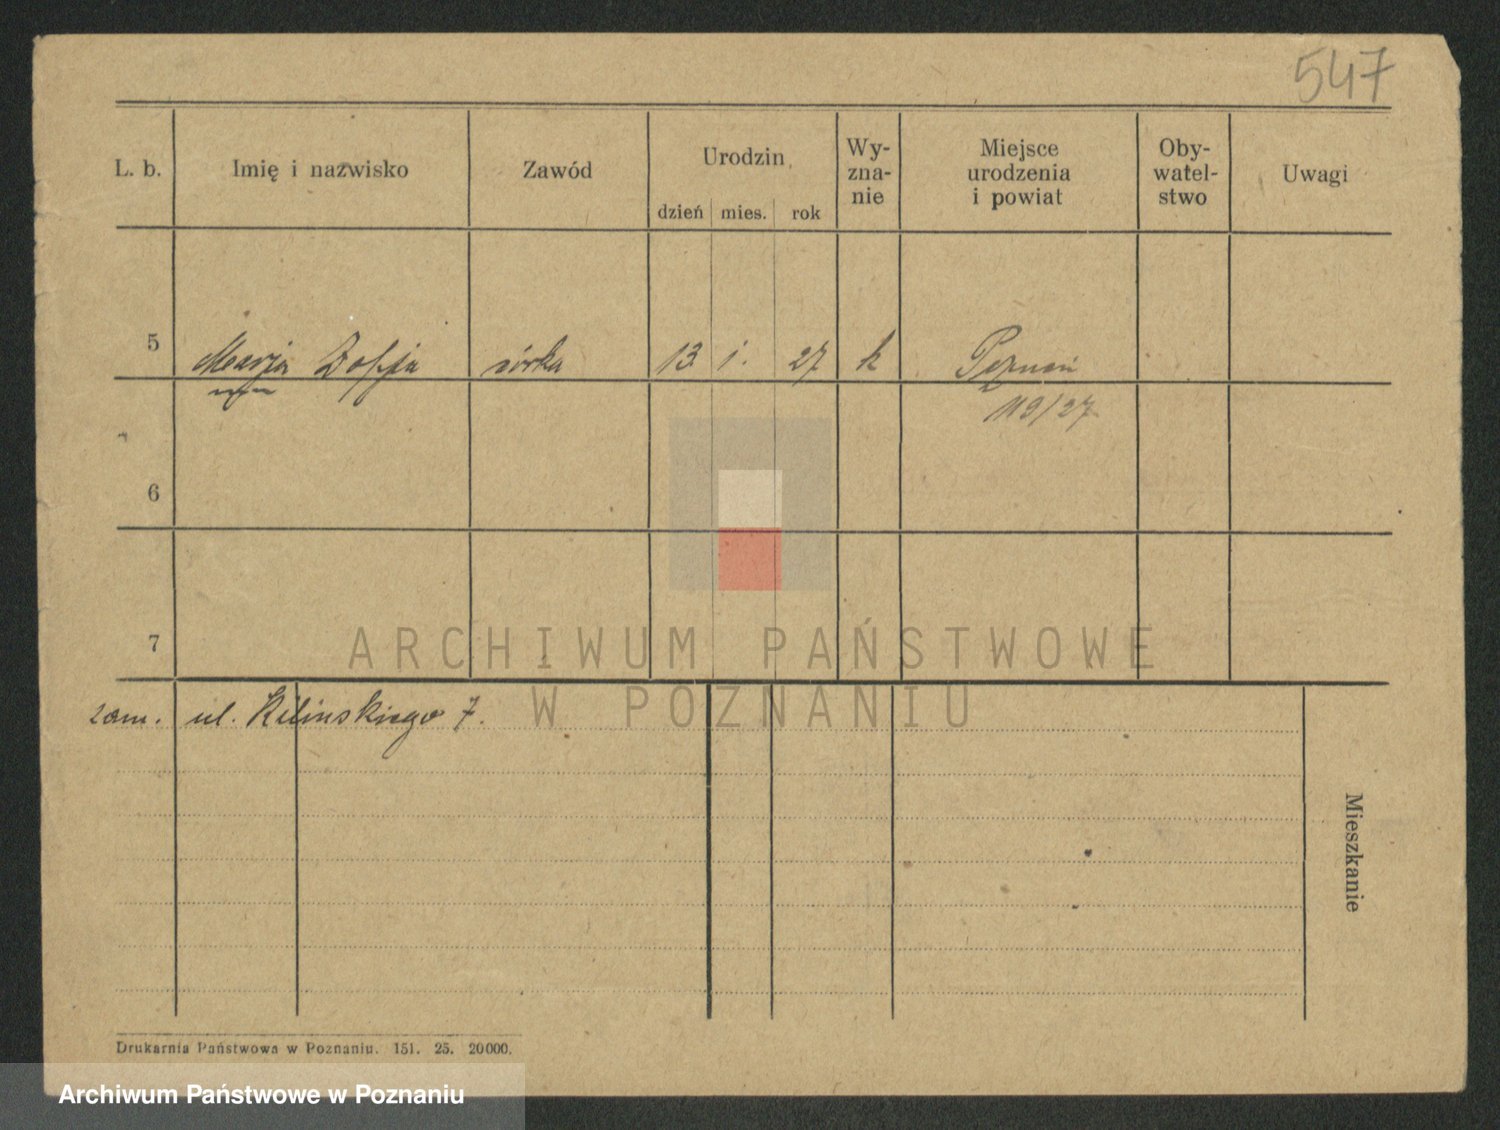 547
L. b. Imię i nazwisko Zawód Urodzin Wy-zna-nie Miejsce urodzenia i powiat Oby-watel-stwo Uwagi
dzień mies. rok
5 Marja Zofja córka 13 i. 27 k Poznań
119/27
6
7
zam. ul. Kilinskiego 7.
Mieszkanie
Drukarnia Państwowa w Poznaniu. 151. 25. 20000.
ARCHIWUM PAŃSTWOWE
W POZNANIU
Archiwum Państwowe w Poznaniu